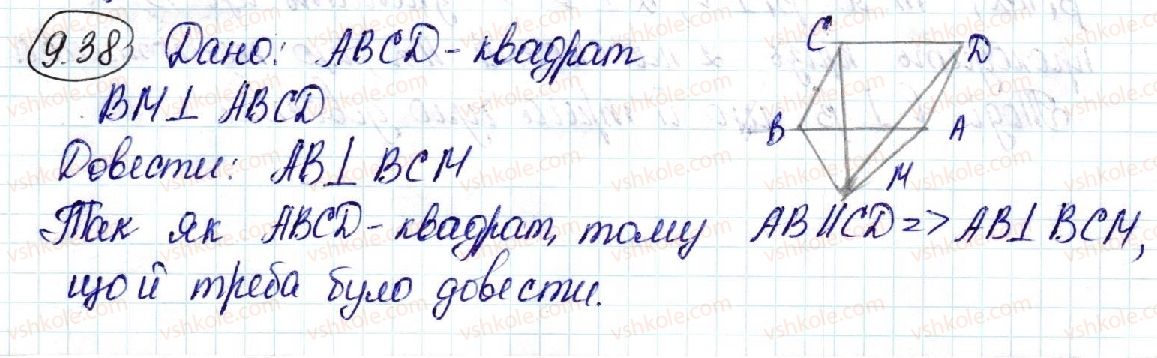 9.38 Дано: ABCD - квадрат
BM⊥ ABCD
Довести: AB⊥ BCM
Так як ABCD - квадрат, тому AB∥CD => AB⊥BCM,
що й треба було довести.
C D
B A
M